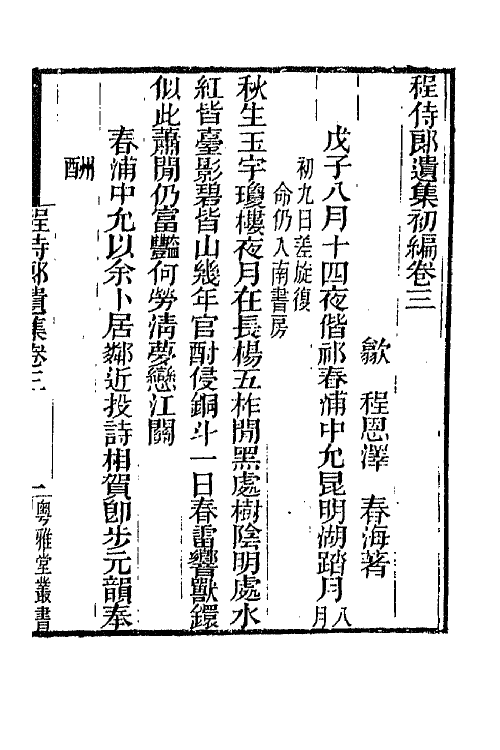 程侍郎遺集初編卷三
歙　程恩澤　春海著
戊子八月十四夜偕祁春浦中允昆明湖踏月八月
初九日差旋復
命仍入南書房
秋生玉宇瓊樓夜月在長楊五柞間黑處樹陰明處水
紅皆臺影碧皆山幾年官酎侵銅斗一日春雷響獸鐶
似此蕭閒仍富豔何勞淸夢戀江關
春浦中允以余卜居鄰近投詩相賀卽步元韻奉
酬
程侍郎遺集卷三
一粵雅堂叢書